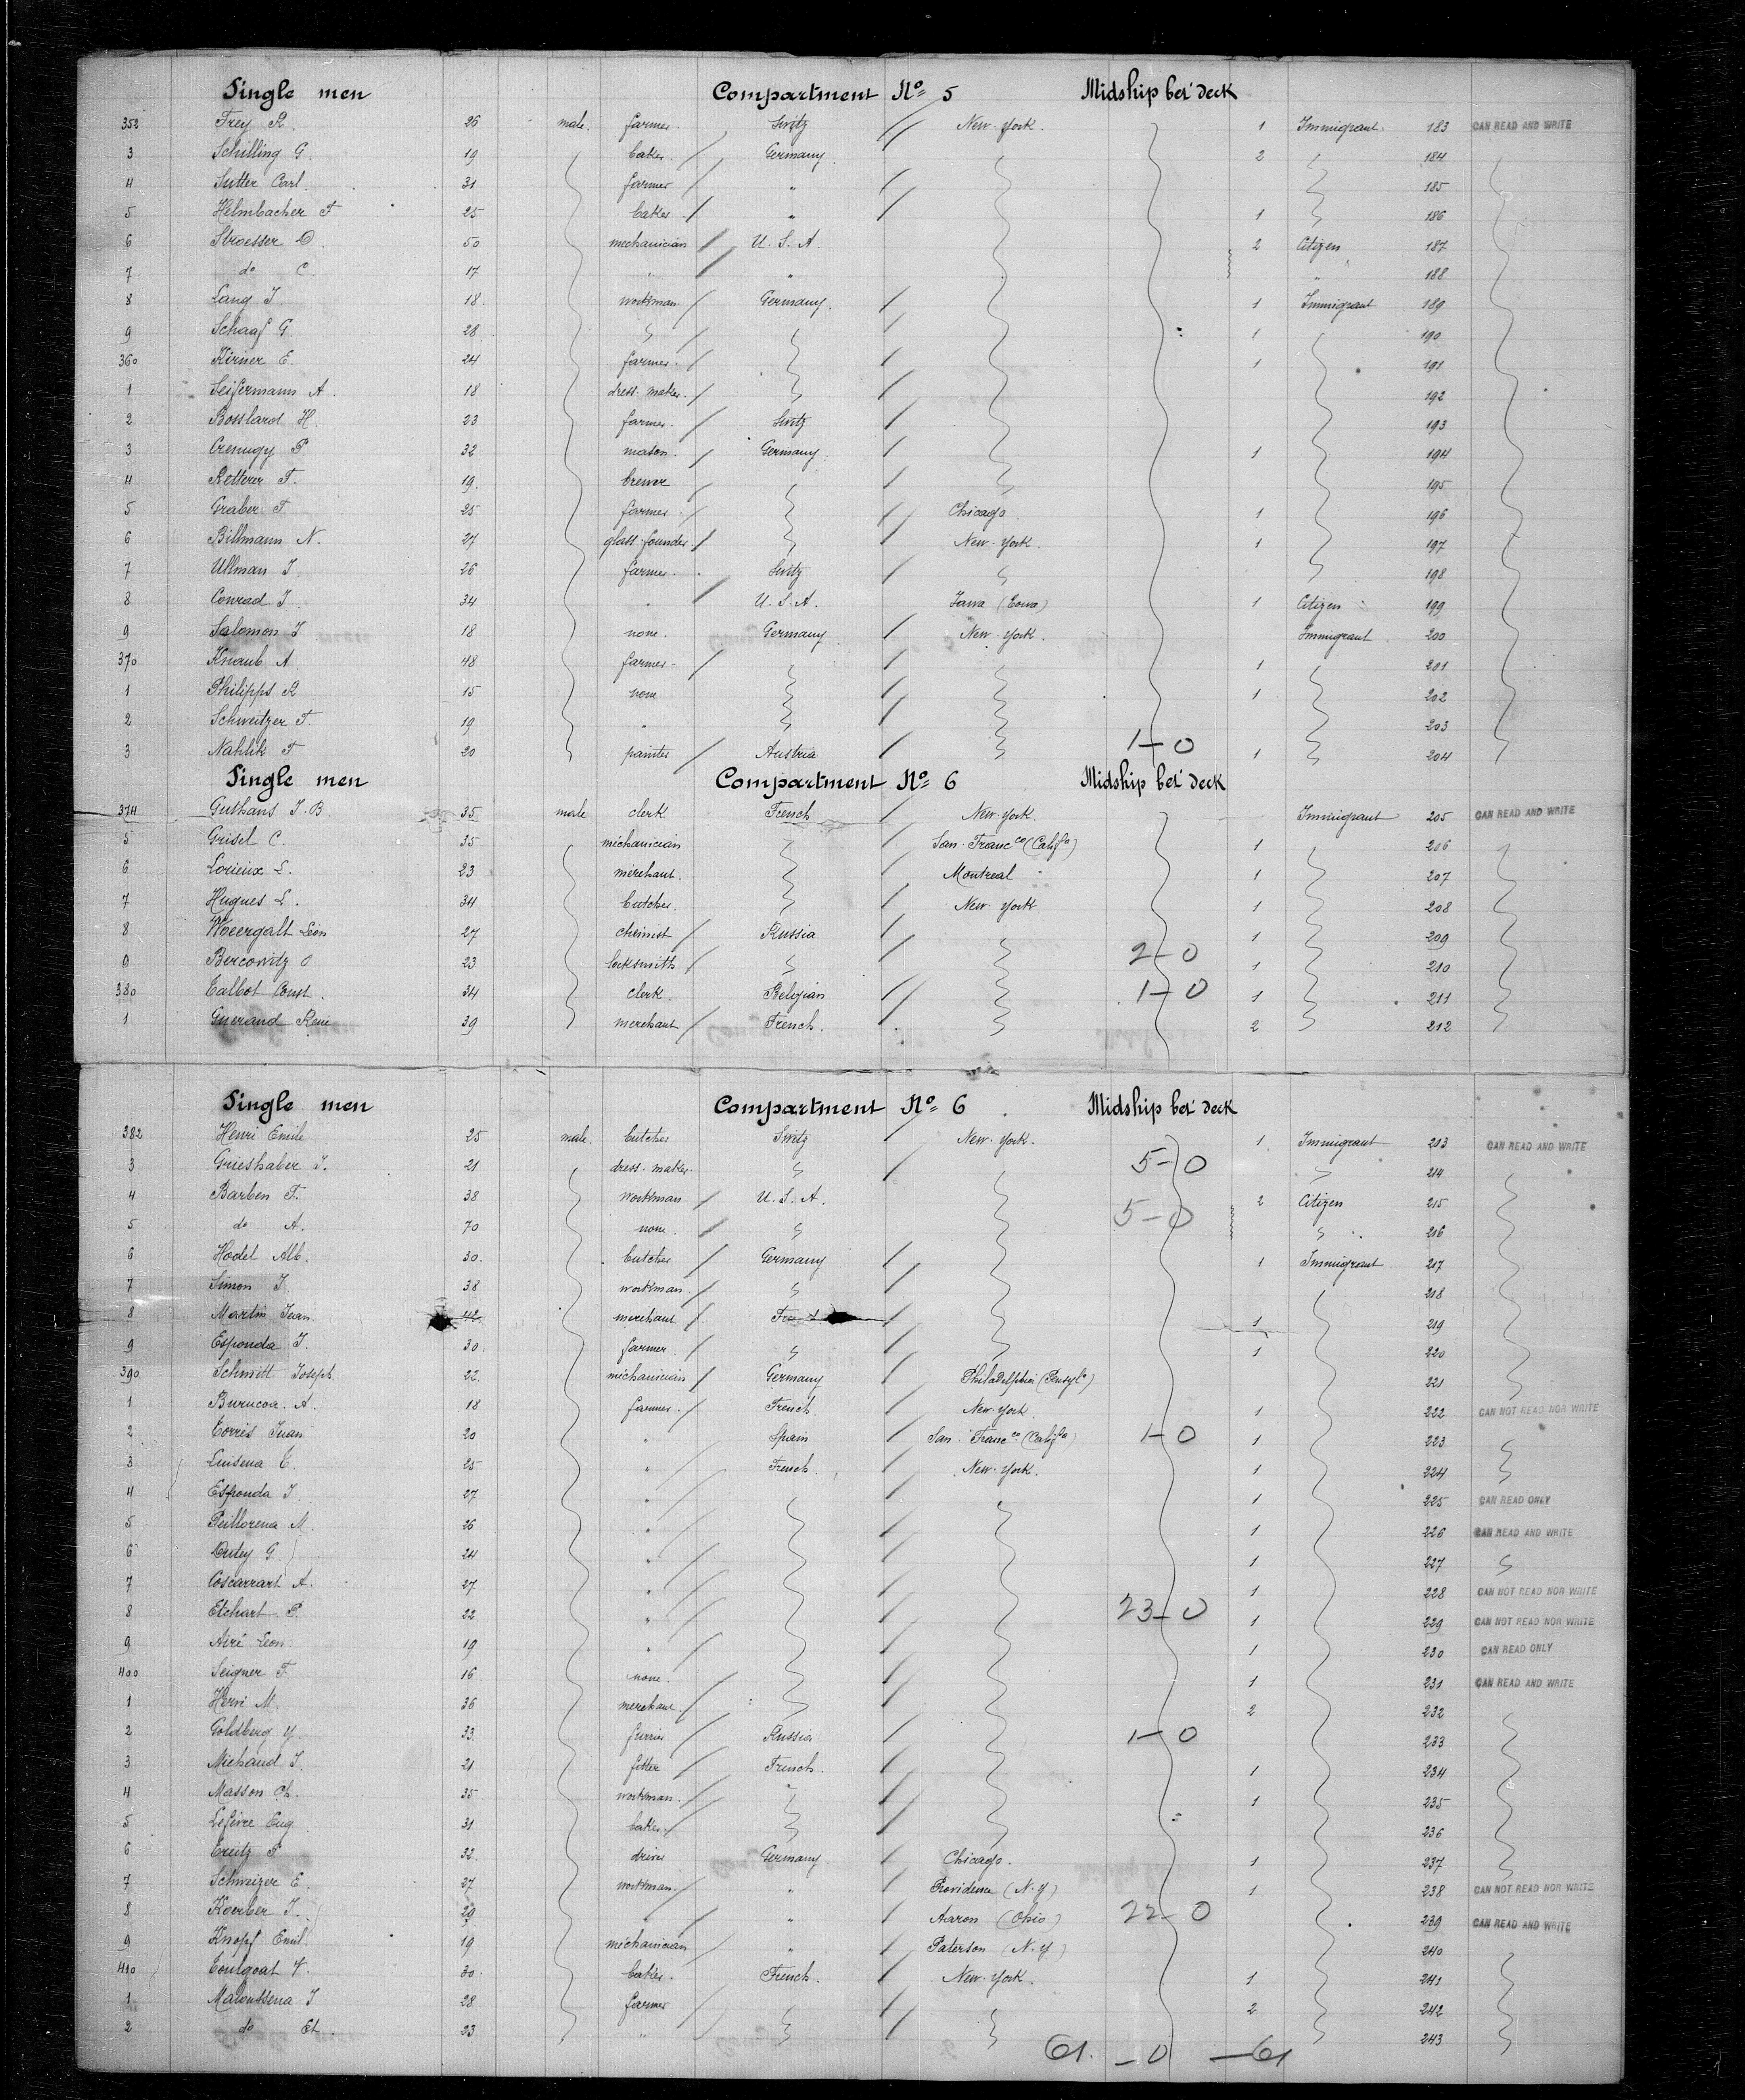 Single men Compartment No 5 Midship bet' deck
352 Frey R. 26 male. farmer. Switz New-York. 1 Immigrant. 183 CAN READ AND WRITE
3 Schilling G. 19 baker. Germany. 2 184
4 Sutter Carl. 31 farmer " 185
5 Helmbacher F 25 baker. " 1 186
6 Stroesser D. 50 mechanician U.S.A. 2 Citizen 187
7 do C. 17 " " " 188
8 Lang J. 18. workman Germany. 1 Immigrant 189
9 Schaaf G. 28 1 190
360 Kirner E. 24 farmer. 1 191
1 Seifermann A. 18 dress-maker. 192
2 Bosslard H. 23 farmer. Switz 193
3 P. 32 mason. Germany. 1 194
4 Retterer F. 19. brewer 195
5 Graber F 25 farmer. Chicago. 1 196
6 Billmann N. 27 glass-founder. New-York. 1 197
7 Ullman J. 26 farmer. Switz 198
8 Conrad J. 34 " U.S.A. Jawa (Eowa) 1 Citizen 199
9 Salomon J. 18 none. Germany New-York. Immigrant 200
370 Knaub A. 48 farmer- 1 201
1 Philipps R 15 none 1 202
2 Schweitzer F. 19 " 203
3 Nahlik F 20 painter Austria 1-0 1 204
Single men Compartment No 6 Midship bet' deck
374 Guthans J.B. 35 male clerk French New-York. Immigrant 205 CAN READ AND WRITE
5 Grisel C. 35 mechanician San-Franc co (Calif a) 1 206
6 Lorieux L. 23 merchant. Montreal 1 207
7 Hugues L. 34 butcher. New-York 1 208
8 Leon 27 chemist Russia 1 209
9 Bercowitz O 23 locksmith 2-0 1 210
380 Talbot Const. 34 clerk. Belgian 1-0 1 211
1 Guerand René 39 merchant French. 2 212
Single men Compartment No 6 Midship bet' deck
382 Henri Emile 25 male. butcher Switz New-York. 1 Immigrant 213 CAN READ AND WRITE
3 Grieshaber J. 21 dress-maker. 5-0 214
4 Barben F. 38 workman U.S.A. 5-0 2 Citizen 215
5 do A. 70 none. 216
6 Hodel Alb. 30. butcher Germany 1 Immigrant 217
7 Simon J 38 workman 218
8 Martin Jean. 42. merchant 1 219
9 Esponda J. 30. farmer. 1 220
390 Schmitt Joseph. 22. mechanician Germany Philadelphia (Pensyl a) 221
1 Burucoa. A. 18 farmer. French. New-York. 1 222 CAN NOT READ NOR WRITE
2 Torrès Juan 20 " Spain San-Franc co (Calif a) 1-0 1 223
3 Luisena E. 25 " French. New-York. 1 224
4 Esponda J. 27. " 1 225 CAN READ ONLY
5 Peillorena M. 26 " 1 226 CAN READ AND WRITE
6 G. 24 " 1 227
7 Coscarrart A. 27. " 1 228 CAN NOT READ NOR WRITE
8 Etchart P. 22. " 23-0 1 229 CAN NOT READ NOR WRITE
9 Airé Leon 19 " 1 230 CAN READ ONLY
400 Seigner F. 16 none. 1 231 CAN READ AND WRITE
1 Hervi M. 36 merchant. 2 232
2 Goldberg Y. 33. furrier Russia 1-0 233
3 Michaud J. 21 fitter French. 1 234
4 Masson Ch. 35 workman. " 1 235
5 Lefivre Eug 31 baker. 236
6 Treitz P 32. driver Germany. Chicago. 1 237
7 Schweizer E. 27. workman. " Providence (N.Y) 1 238 CAN NOT READ NOR WRITE
8 Koerber J. 29 " " Aaron (Ohio) 22-0 239 CAN READ AND WRITE
9 Knopf Emil 19 mechanician " Paterson (N.Y) 240
410 Toulgoat Y. 30. baker. French. New-York. 1 241
1 Maloussena J 28 farmer 2 242
2 do Et. 23 " 243
61. - 0 - 61